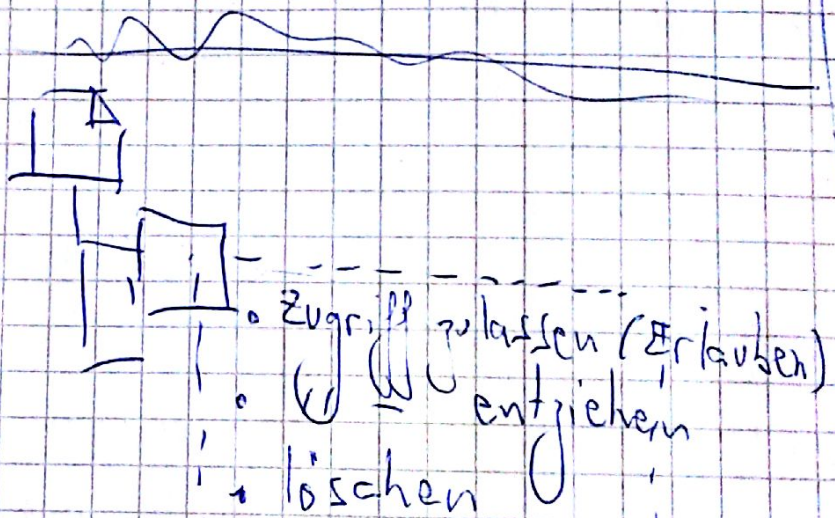 • Zugriff zulassen (Erlauben)
• entziehen
• löschen